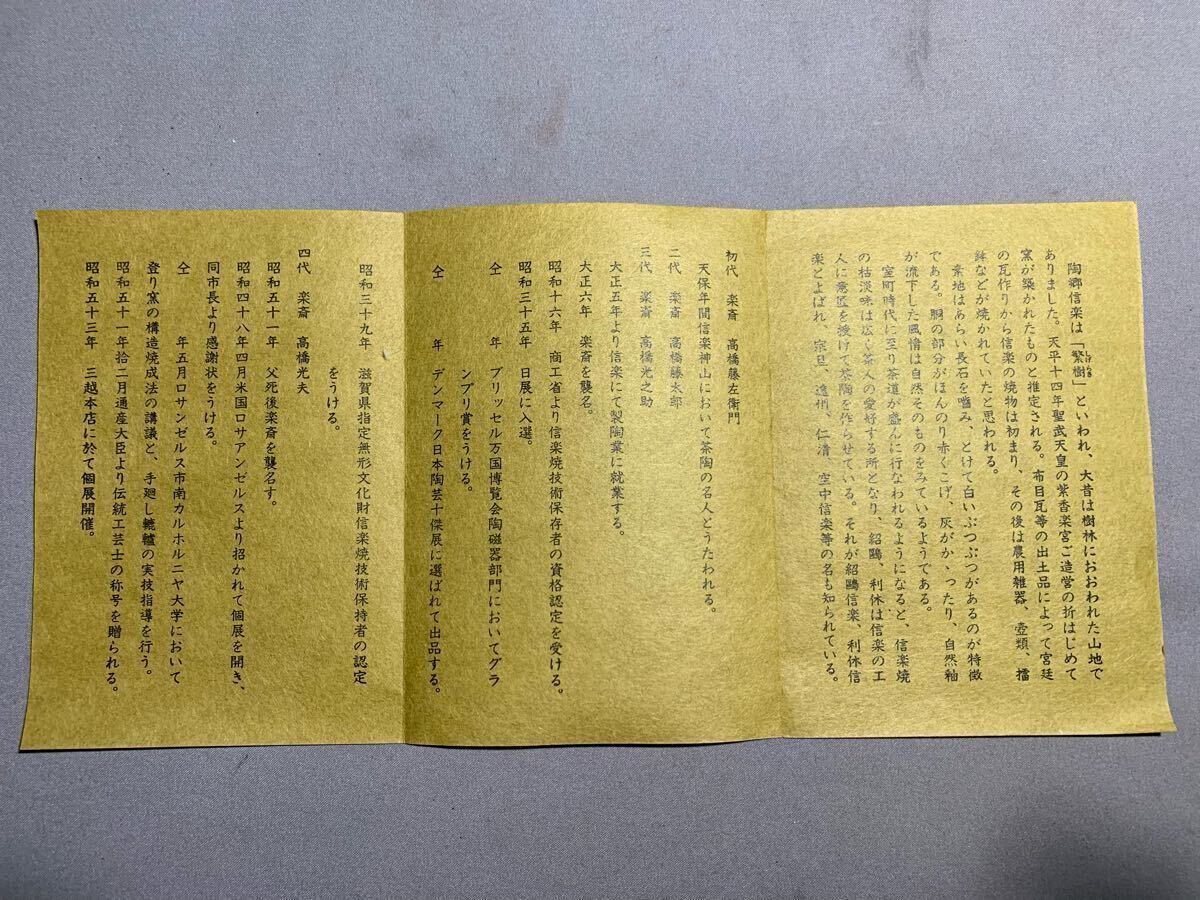 陶郷信楽は「繁樹」といわれ、大昔は樹林におおわれた山地で
ありました。天平十四年聖武天皇の紫香楽宮ご造営の折はじめて
窯が築かれたものと推定される。布目瓦等の出土品によって宮廷
の瓦作りから信楽の焼物は初まり、その後は農用雑器、壺類、擂
鉢などが焼かれていたと思われる。
素地はあらい長石を嚙み、とけて白いぶつぶつがあるのが特徴
である。胴の部分がほんのり赤くこげ、灰がかゝったり、自然釉
が流下した風情は自然そのものをみているようである。
室町時代に至り茶道が盛んに行なわれるようになると、信楽焼
の枯淡味は広く茶人の愛好する所となり、紹鷗、利休は信楽の工
人に意匠を授けて茶陶を作らせている。それが紹鷗信楽、利休信
楽とよばれ、宗旦、遠州、仁清、空中信楽等の名も知られている。
初代 楽斎 高橋藤左衛門
天保年間信楽神山において茶陶の名人とうたわれる。
二代 楽斎 高橋藤太郎
三代 楽斎 高橋光之助
大正五年より信楽にて製陶業に就業する。
大正六年 楽斎を襲名。
昭和十六年 商工省より信楽焼技術保存者の資格認定を受ける。
昭和三十五年 日展に入選。
仝 年 ブリッセル万国博覧会陶磁器部門においてグラ
ンプリ賞をうける。
仝 年 デンマーク日本陶芸十傑展に選ばれて出品する。
昭和三十九年 滋賀県指定無形文化財信楽焼技術保持者の認定
をうける。
四代 楽斎 高橋光夫
昭和五十一年 父死後楽斎を襲名す。
昭和四十八年四月米国ロサアンゼルスより招かれて個展を開き、
同市長より感謝状をうける。
仝 年五月ロサンゼルス市南カルホルニヤ大学において
登り窯の構造焼成法の講議と、手廻し轆轤の実技指導を行う。
昭和五十一年拾二月通産大臣より伝統工芸士の称号を贈られる。
昭和五十三年 三越本店に於て個展開催。